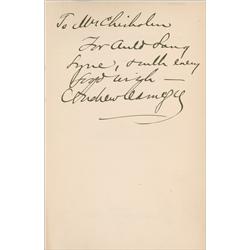 To Mr Chisholm
For Auld Lang
Syne, & with every
good wish —
Andrew Carnegie